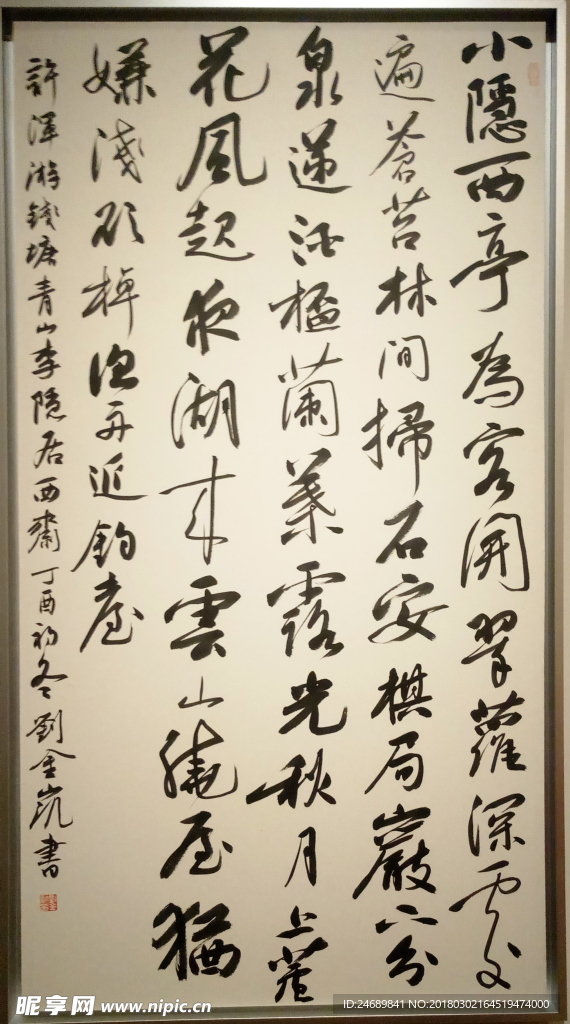 小隱西亭為客開翠蘿深處
遍蒼苔林間掃石安棋局巖下分
泉遞酒桮蘭葉露光秋月上蘆
花風起夜湖来雲山繞屋猶
嫌淺欲棹漁舟近釣臺
許渾游錢塘青山李隱居西齋丁酉初冬劉金凯書
昵享网 www.nipic.cn
ID:24689841 NO:20180302164519474000